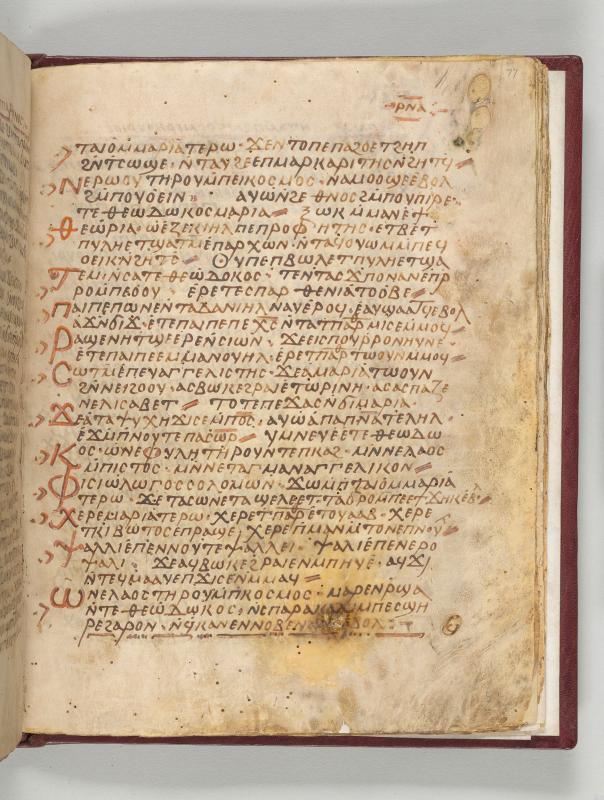 77
ⲣⲛⲁ
ⲧⲁⲓⲟⲙⲙⲁⲣⲓⲁⲧⲉⲣⲱ · ϫⲉⲛⲧⲟⲡⲉⲡⲁϩⲟⲉⲧϩⲏⲡ
ϩⲛⲧⲥⲱϣⲉ · ⲛⲧⲁⲩϩⲉⲉⲡⲙⲁⲣⲕⲁⲣⲓⲧⲏⲥⲛϩⲏⲧϥ
ⲛⲉⲣⲱⲟⲩⲧⲏⲣⲟⲩⲙⲡⲉⲓⲕⲟⲥⲙⲟⲥ · ⲛⲁⲙⲟⲟϣⲉⲉⲃⲟⲗ
ϩⲙⲡⲟⲩⲟⲉⲓⲛ · ⲁⲩⲱⲛϩⲉⲑⲛⲟⲥϩⲙⲡⲟⲩⲡⲓⲣⲉ ·
ⲧⲉⲑⲉⲱⲇⲱⲕⲟⲥⲙⲁⲣⲓⲁ
ⲑⲉⲱⲣⲓⲁ · ⲱⲉⲍⲉⲕⲓⲏⲗⲡⲉⲡⲣⲟⲫⲏⲧⲏⲥ · ⲉⲧⲃⲉⲧ
ⲡⲩⲗⲏⲉⲧϣⲁⲧⲙⲉⲡⲁⲣⲭⲱⲛ · ⲛⲧⲁϥⲟⲩⲱⲙⲙⲡⲉϥ
ⲟⲉⲓⲕⲛϩⲏⲧⲥ · ⲟⲩⲡⲉⲡⲃⲱⲗⲉⲧⲡⲩⲗⲏⲉⲧϣⲁ
ⲧⲉⲙⲓⲛⲥⲁⲧⲉⲑⲉⲱⲇⲟⲕⲟⲥ · ⲧⲉⲛⲧⲁⲥϫⲡⲟⲛⲁⲛⲉⲡⲣ
ⲣⲟⲙⲡⲉⲟⲟⲩ · ⲉⲣⲉⲧⲉⲥⲡⲁⲣⲑⲉⲛⲓⲁⲧⲟⲟⲃⲉ
ⲡⲁⲓⲡⲉⲡⲱⲛⲉⲛⲧⲁⲇⲁⲛⲓⲏⲗⲛⲁⲩⲉⲣⲟϥ · ⲉⲁⲩϣⲁⲁⲧϥⲉⲃⲟⲗ
ⲁϫⲛϭⲓϫ · ⲉⲧⲉⲡⲁⲓⲡⲉⲡⲉⲭⲥⲛⲧⲁⲧⲡⲁⲣⲙⲓⲥⲉⲙⲙⲟϥ
ⲣⲁϣⲉⲛⲏⲧϣⲉⲉⲣⲉⲛⲥⲓⲱⲛ · ϫⲉⲉⲓⲥⲡⲟⲩⲣⲣⲟⲛⲏⲩⲛⲉ
ⲉⲧⲉⲡⲁⲓⲡⲉⲉⲙⲙⲁⲛⲟⲩⲏⲗ · ⲉⲣⲉⲧⲡⲁⲣⲧⲱⲟⲩⲛⲙⲙⲟϥ
ⲥⲱⲧⲙⲉⲡⲉⲩⲁⲅⲅⲉⲗⲓⲥⲧⲏⲥ · ϫⲉⲁⲙⲁⲣⲓⲁⲧⲱⲟⲩⲛ
ϩⲛⲛⲉⲓϩⲟⲟⲩ · ⲁⲥⲃⲱⲕⲉϩⲣⲁⲓⲉⲧⲱⲣⲓⲛⲏ · ⲁⲥⲁⲥⲡⲁⲍⲉ
ⲛⲉⲗⲓⲥⲁⲃⲉⲧ · ⲧⲟⲧⲉⲡⲉϫⲁⲥⲛϭⲓⲙⲁⲣⲓⲁ ·
ϫⲉⲁⲧⲁⲯⲩⲭⲏϫⲓⲥⲉⲙⲡⲟⲥ · ⲁⲩⲱⲁⲡⲁⲡⲛⲁⲧⲉⲗⲏⲗ ·
ⲉϫⲙⲡⲛⲟⲩⲧⲉⲡⲁⲥⲱⲣ · ⲩⲙⲛⲉⲩⲉⲉⲧⲉⲑⲉⲱⲇⲱ
ⲕⲟⲥ · ⲱⲛⲉⲫⲩⲗⲏⲧⲏⲣⲟⲩⲛⲧⲉⲡⲕⲁϩ · ⲙⲛⲛⲉⲗⲁⲟⲥ
ⲙⲡⲓⲥⲧⲟⲥ · ⲙⲛⲛⲉⲧⲁⲅⲙⲁⲛⲁⲅⲅⲉⲗⲓⲕⲟⲛ
ⲫⲓⲥⲓⲱⲗⲱⲅⲟⲥⲥⲟⲗⲟⲙⲱⲛ · ϫⲱⲙⲡⲧⲁⲓⲟⲙⲙⲁⲣⲓⲁ
ⲧⲉⲣⲱ · ϫⲉⲧⲁⲥⲱⲛⲉⲧⲁϣⲉⲗⲉⲉⲧ · ⲧⲁϭⲣⲟⲙⲡⲉ
ⲭⲉⲣⲉⲙⲁⲣⲓⲁⲧⲉⲣⲱ · ⲭⲉⲣⲉⲧⲡⲁⲣⲉⲧⲟⲩⲁⲁⲃ · ⲭⲉⲣⲉ
ⲧⲕⲓⲃⲱⲧⲟⲥⲉⲡⲣⲁϣⲉ · ⲭⲉⲣⲉⲡⲙⲁⲛⲙⲧⲟⲛⲉⲡⲛⲟⲩ
ⲯⲁⲗⲗⲓⲉⲡⲉⲛⲛⲟⲩⲧⲉⲯⲁⲗⲗⲉⲓ · ⲯⲁⲗⲓⲉⲡⲉⲛⲉⲣⲟ
ⲯⲁⲗⲓ · ϫⲉⲁϥⲃⲱⲕⲉϩⲣⲁⲓⲉⲛⲙⲡⲏⲩⲉ · ⲁϥϫⲓ
ⲛⲧⲉϥⲙⲁⲁⲩⲉⲡϫⲓⲥⲉⲛⲙⲙⲁϥ
ⲱⲛⲉⲗⲁⲟⲥⲧⲏⲣⲟⲩⲙⲡⲕⲟⲥⲙⲟⲥ · ⲙⲁⲣⲉⲛⲣϣⲁ
ⲛⲧⲉⲑⲉⲱⲇⲱⲕⲟⲥ · ⲛⲥⲡⲁⲣⲁⲕⲁⲗⲓⲙⲡⲉⲥϣⲏ
ⲣⲉϩⲁⲣⲟⲛ · ⲛϥⲕⲁⲛⲉⲛⲛⲟⲃⲉⲛⲁⲛⲉⲃⲟⲗ